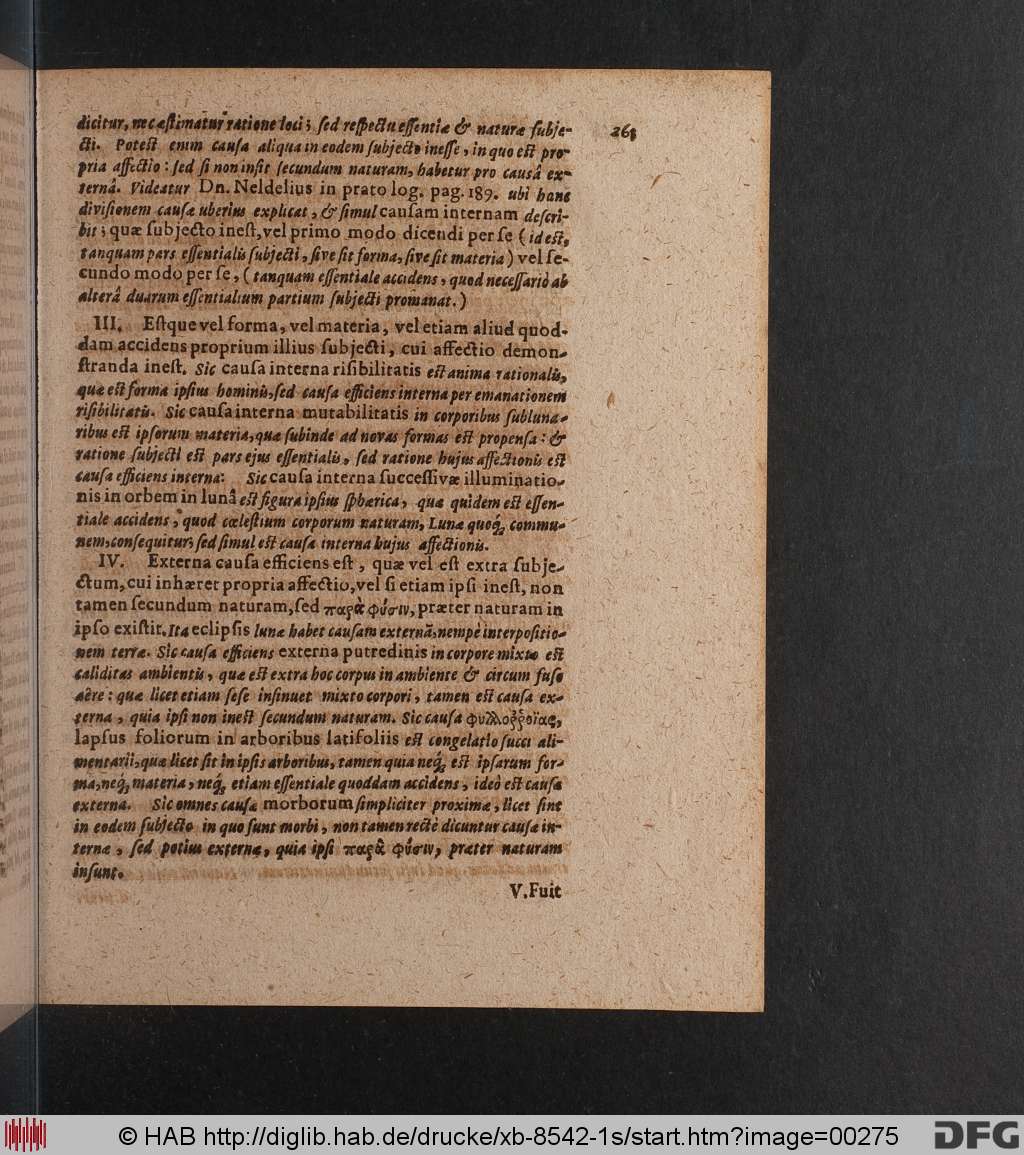 dicitur, nec æstimatur ratione loci; sed respectu essentiæ & naturæ subje-
cti. Potest enim causa aliqua in eodem subjecto inesse, in quo est pro-
pria affectio: sed si non insit secundum naturam, habetur pro causâ ex-
ternâ. Videatur Dn. Neldelius in prato log. pag. 189. ubi hanc
divisionem causæ uberius explicat, & simul causam internam descri-
bit; quæ subjecto inest, vel primo modo dicendi per se (id est,
tanquam pars essentialis subjecti, sive sit forma, sive sit materia) vel se-
cundo modo per se, (tanquam essentiale accidens, quod necessariò ab
alterâ duarum essentialium partium subjecti promanat.)
III. Estque vel forma, vel materia, vel etiam aliud quod-
dam accidens proprium illius subjecti, cui affectio demon-
stranda inest. Sic causa interna risibilitatis est anima rationalis,
quæ est forma ipsius hominis, sed causa efficiens interna per emanationem
risibilitatis. Sic causa interna mutabilitatis in corporibus subluna-
ribus est ipsorum materia, quæ subinde ad novas formas est propensa: &
ratione subjecti est pars ejus essentialis, sed ratione hujus affectionis est
causa efficiens interna: Sic causa interna successivæ illuminatio-
nis in orbem in lunâ est figura ipsius sphærica, quæ quidem est essen-
tiale accidens, quod cœlestium corporum naturam, Lunæ quoq; commu-
nem, consequitur; sed simul est causa interna hujus affectionis.
IV. Externa causa efficiens est, quæ vel est extra subje-
ctum, cui inhæret propria affectio, vel si etiam ipsi inest, non
tamen secundum naturam, sed παρὰ φύσιν, præter naturam in
ipso existit. Ita eclipsis lunæ habet causam externã, nempè interpositio-
nem terræ. Sic causa efficiens externa putredinis in corpore mixto est
caliditas ambientis, quæ est extra hoc corpus in ambiente & circum fuso
aëre: quæ licet etiam sese insinuet mixto corpori, tamen est causa ex-
terna, quia ipsi non inest secundum naturam. Sic causa φυλλοῤῥοΐας,
lapsus foliorum in arboribus latifoliis est congelatio succi ali-
mentarii, quæ licet sit in ipsis arboribus, tamen quia neq; est ipsarum for-
ma, neq; materia, neq; etiam essentiale quoddam accidens, ideò est causa
externa. Sic omnes causæ morborum simpliciter proximæ, licet sint
in eodem subjecto in quo sunt morbi, non tamen rectè dicuntur causæ in-
ternæ, sed potius externæ, quia ipsi παρὰ φύσιν, præter naturam
insunt.
V. Fuit
261
© HAB http://diglib.hab.de/drucke/xb-8542-1s/start.htm?image=00275
DFG